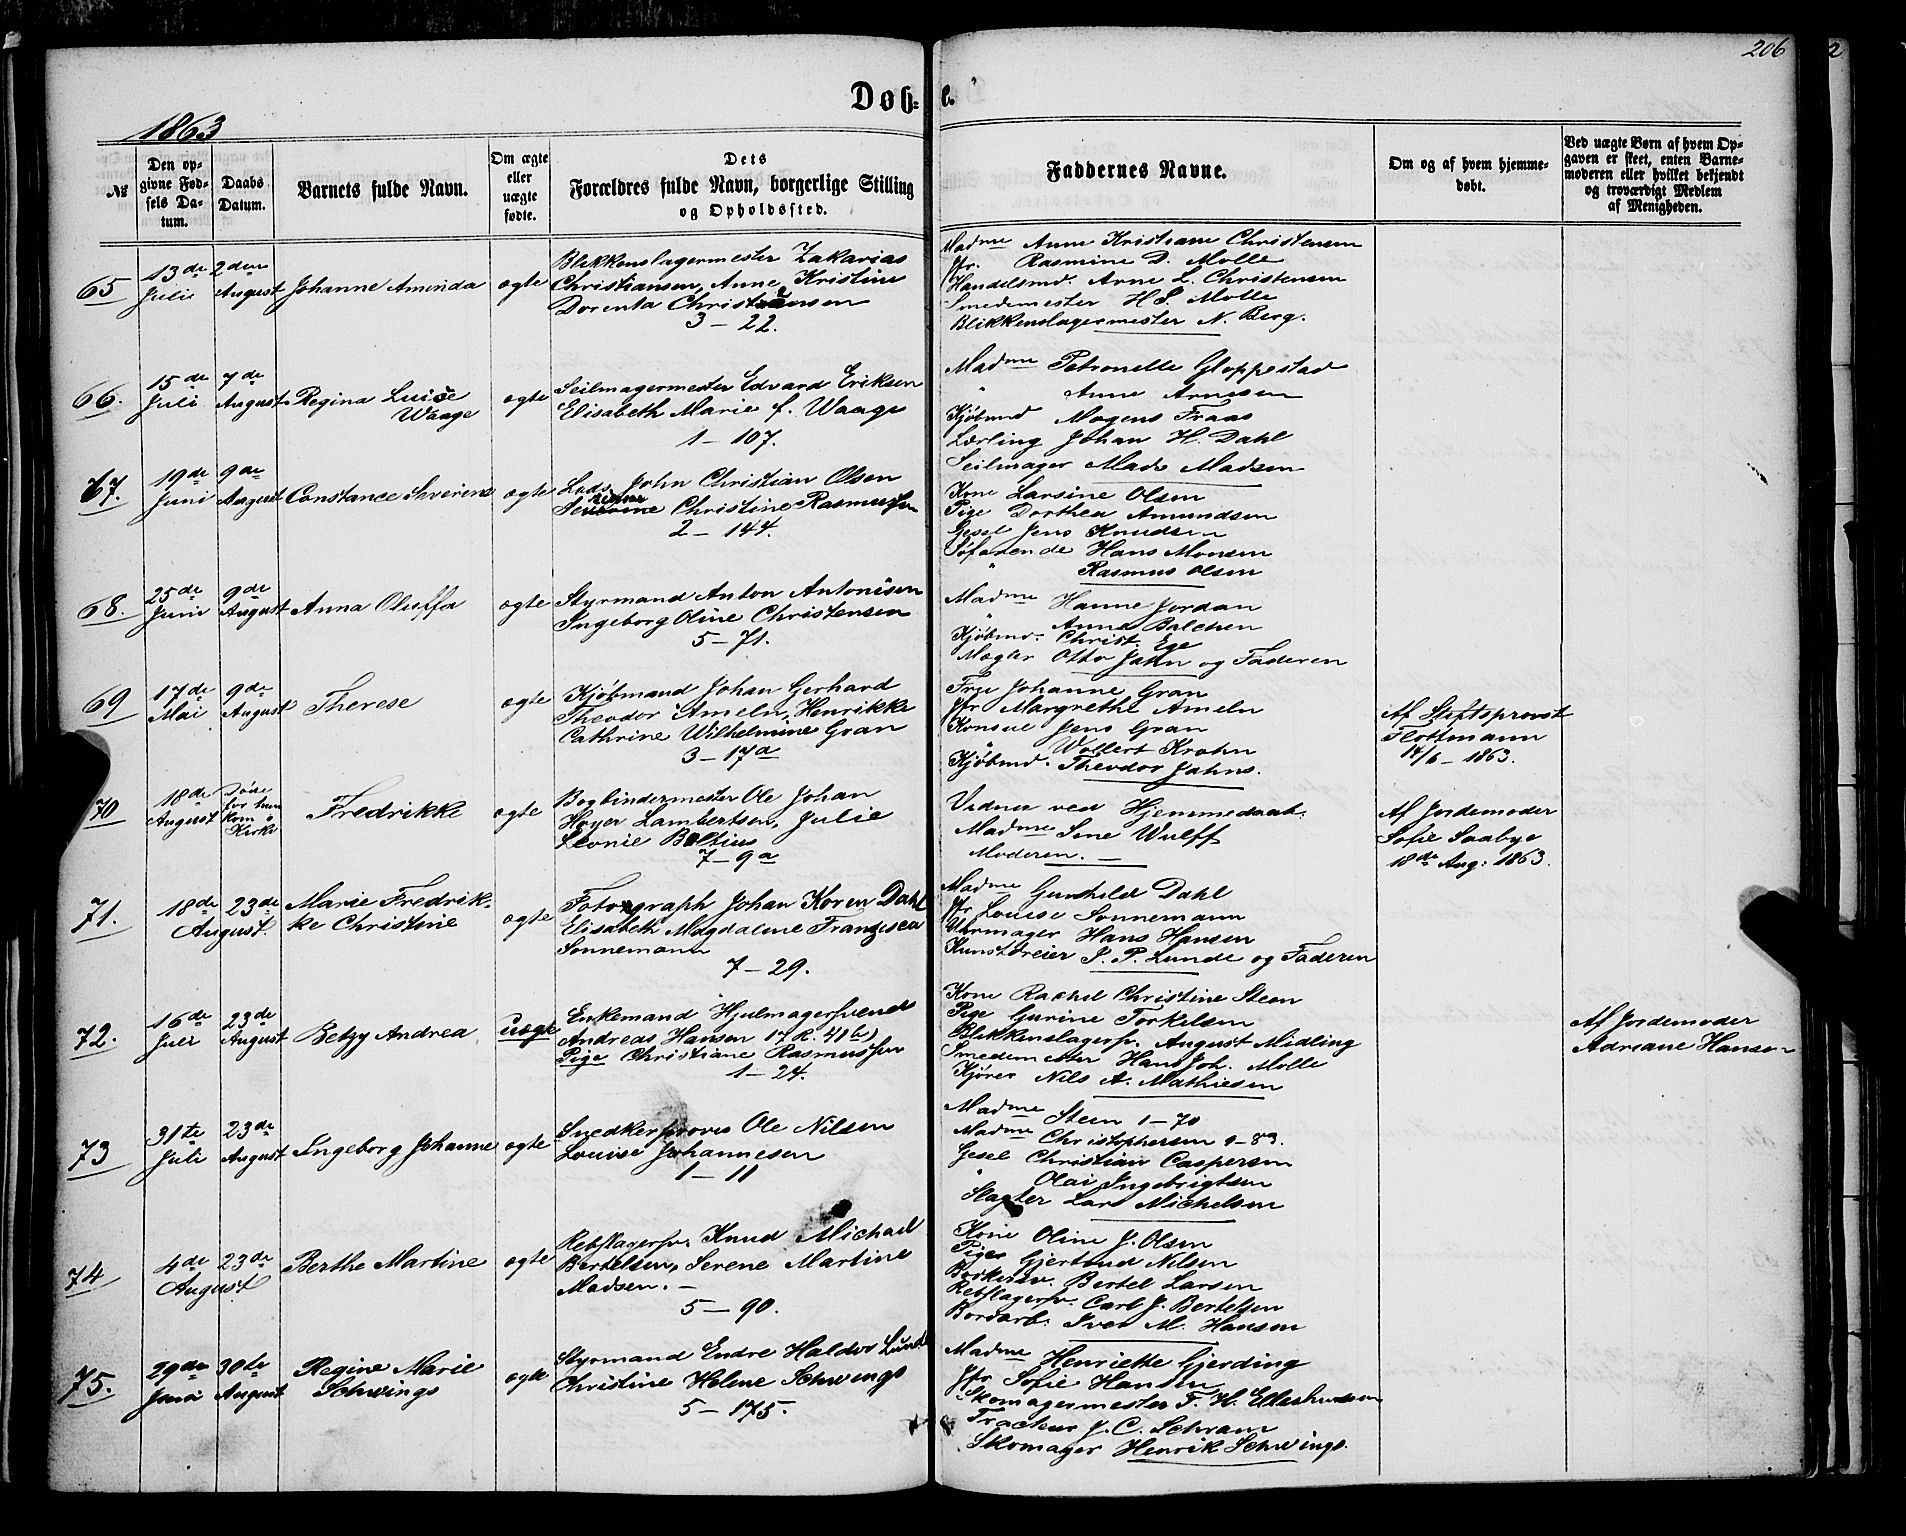 206
2
Dob-
e.
1863
№
Den op-
givne Fød-
sels Da-
tum.
Daabs
Datum.
Barnets fulde Navn.
Om ægte
eller
uægte
fødte.
Dets
Forældres fulde Navn, borgerlige Stilling
og Opholdssted.
Faddernes Navne.
Om og af hvem hjemme-
døbt.
Ved uægte Børn af hvem Op-
gaven er skeet, enten Barne-
moderen eller hvilket bekjendt
og troværdigt Medlem
af Menigheden.
65
13de
Juli
2den
August
Johanne Aminda
ægte
Blikkenslagermester Zakarias
Christiansen, Anne Kristine
Dorenta Christiansen
3 – 22.
Madme Anne Kristiane Christensen
Jfr. Rasmine D. Molle
Handelsmd. Arne L. Christensen
Smedemester H S. Molle
Blikkenslagermester N. Berg.
66.
15de
Juli
7de
August
Regina Luise
Waage
ægte
Seilmagermester Edvard Eriksen
Elisabeth Marie f. Waage
1 – 107.
Madme Petronelle Gloppestad
" Anne Arnesen
Kjøbmd Mogens Fraas
Lærling Johan H. Dahl
Seilmager Mads Madsen
67.
19de
Juni
9de
August
Constance Severine
ægte
Lods John Christian Olsen
Severine Christine Rasmussen
2 – 144.
Kone Larsine Olsen
Pige Dorthea Amundsen
Gesel Jens Knudsen
Søfarende Hans Monsen
" Rasmus Olsen
68.
25de
Juni
9de
August
Anna Oluffa
ægte
Styrmand Anton Antonisen
Ingeborg Oline Christensen
5 – 71.
Madme Hanne Jordan
" Anna Balchen
Kjøbmd. Christ. Ege
Mægler Otto Jahn og Faderen
69
17de
Mai
9de
August
Therese
ægte
Kjøbmand Johan Gerhard
Theodor Ameln, Henrikke
Cathrine Wilhelmine Gran
3 – 17a
Fru Johanne Gran
Jfr Margrethe Ameln
Konsul Jens Gran
" Wollert Krohn
Kjøbmd. Theodor Jahns.
Af Stiftsprovst
Flottmann
14/6 – 1863.
70
18de
August
Døde
før hun
kom i
Kirke
Fredrikke
ægte
Bogbindermester Ole Johan
Høyer Lambertsen, Julie
Leonie Boltius
7 – 9a
Vidner ved Hjemmedaab.
Madme Sene Wulff
Moderen. –
Af Jordemoder
Sofie Saabye
18de Aug: 1863.
71.
18de
23de
August.
Marie Fredrik-
ke Christine
ægte
Fotograph Johan Koren Dahl
Elisabeth Magdalene Franzisca
Sonnemann
7 – 29.
Madme Gunhild Dahl
Jfr Louise Sonnemann
Uhrmager Hans Hansen
Kunstdreier J. P. Lunde og Faderen
72.
16de
Juli
23de
August
Betzy Andrea
uægte
Enkemand Hjulmagersvend
Andreas Hansen 17 R. 41b)
Pige Christiane Rasmussen
1 – 24.
Kone Rachel Christine Steen
Pige Gurine Torkelsen
Blikkenslagersv. August Midling
Smedemester Hans Joh. Molle
Kjører Nils A. Mathiesen
Af Jordemoder
Adriane Hansen
73
31te
Juli
23de
August
Ingeborg Johanne
ægte
Snedkersvend Ole Nilsen
Louise Johannesen
1 – 11
Madme Steen 1 – 70
Madme Christophersen 1 – 83.
Gesel Christian Caspersen
" Olai Ingebrigtsen
Slagter Lars Michelsen
74
4de
23de
August
Berthe Martine
ægte
Rebslagersv. Knud Michael
Bertelsen, Serene Martine
Madsen. –
5 – 90.
Kone Oline J. Olsen
Pige Gjertrud Nilsen
Bødkersv. Bertel Larsen
Rebslagersv. Carl J. Bertelsen
Bordarb. Iver M. Hansen
75.
29de
Juni
30te
August
Regine Marie
Schwings
ægte
Styrmand Endre Haldor Lunde
Christine Helene Schwings
5 – 175.
Madme Henriette Gjerding
Jfr Sofie Hansen
Skomagermester F. H. Ellerhusen
J. C. Schram
Skomager Henrik Schwings.